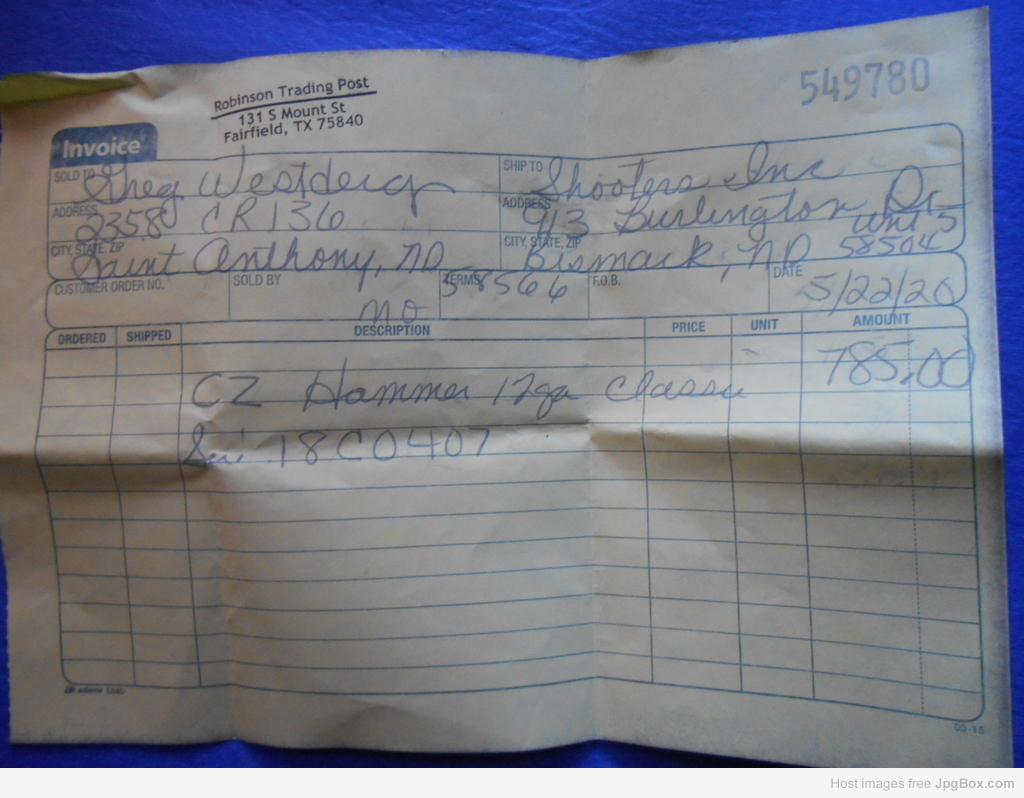 Robinson Trading Post
131 S Mount St
Fairfield, TX 75840
549780
Invoice
SOLD TO Greg Westderg
SHIP TO Shooters Inc
ADDRESS 2358 CR 136
ADDRESS 913 Burlington Dr unit 5
CITY, STATE, ZIP Saint Anthony, ND 58566
CITY, STATE, ZIP Bismarck, ND 58504
CUSTOMER ORDER NO. SOLD BY mo TERMS F.O.B. DATE 5/22/20
ORDERED SHIPPED DESCRIPTION PRICE UNIT AMOUNT
CZ Hammer 12ga Classic 785.00
18C0407
adams 5840
09-15
Host images free JpgBox.com